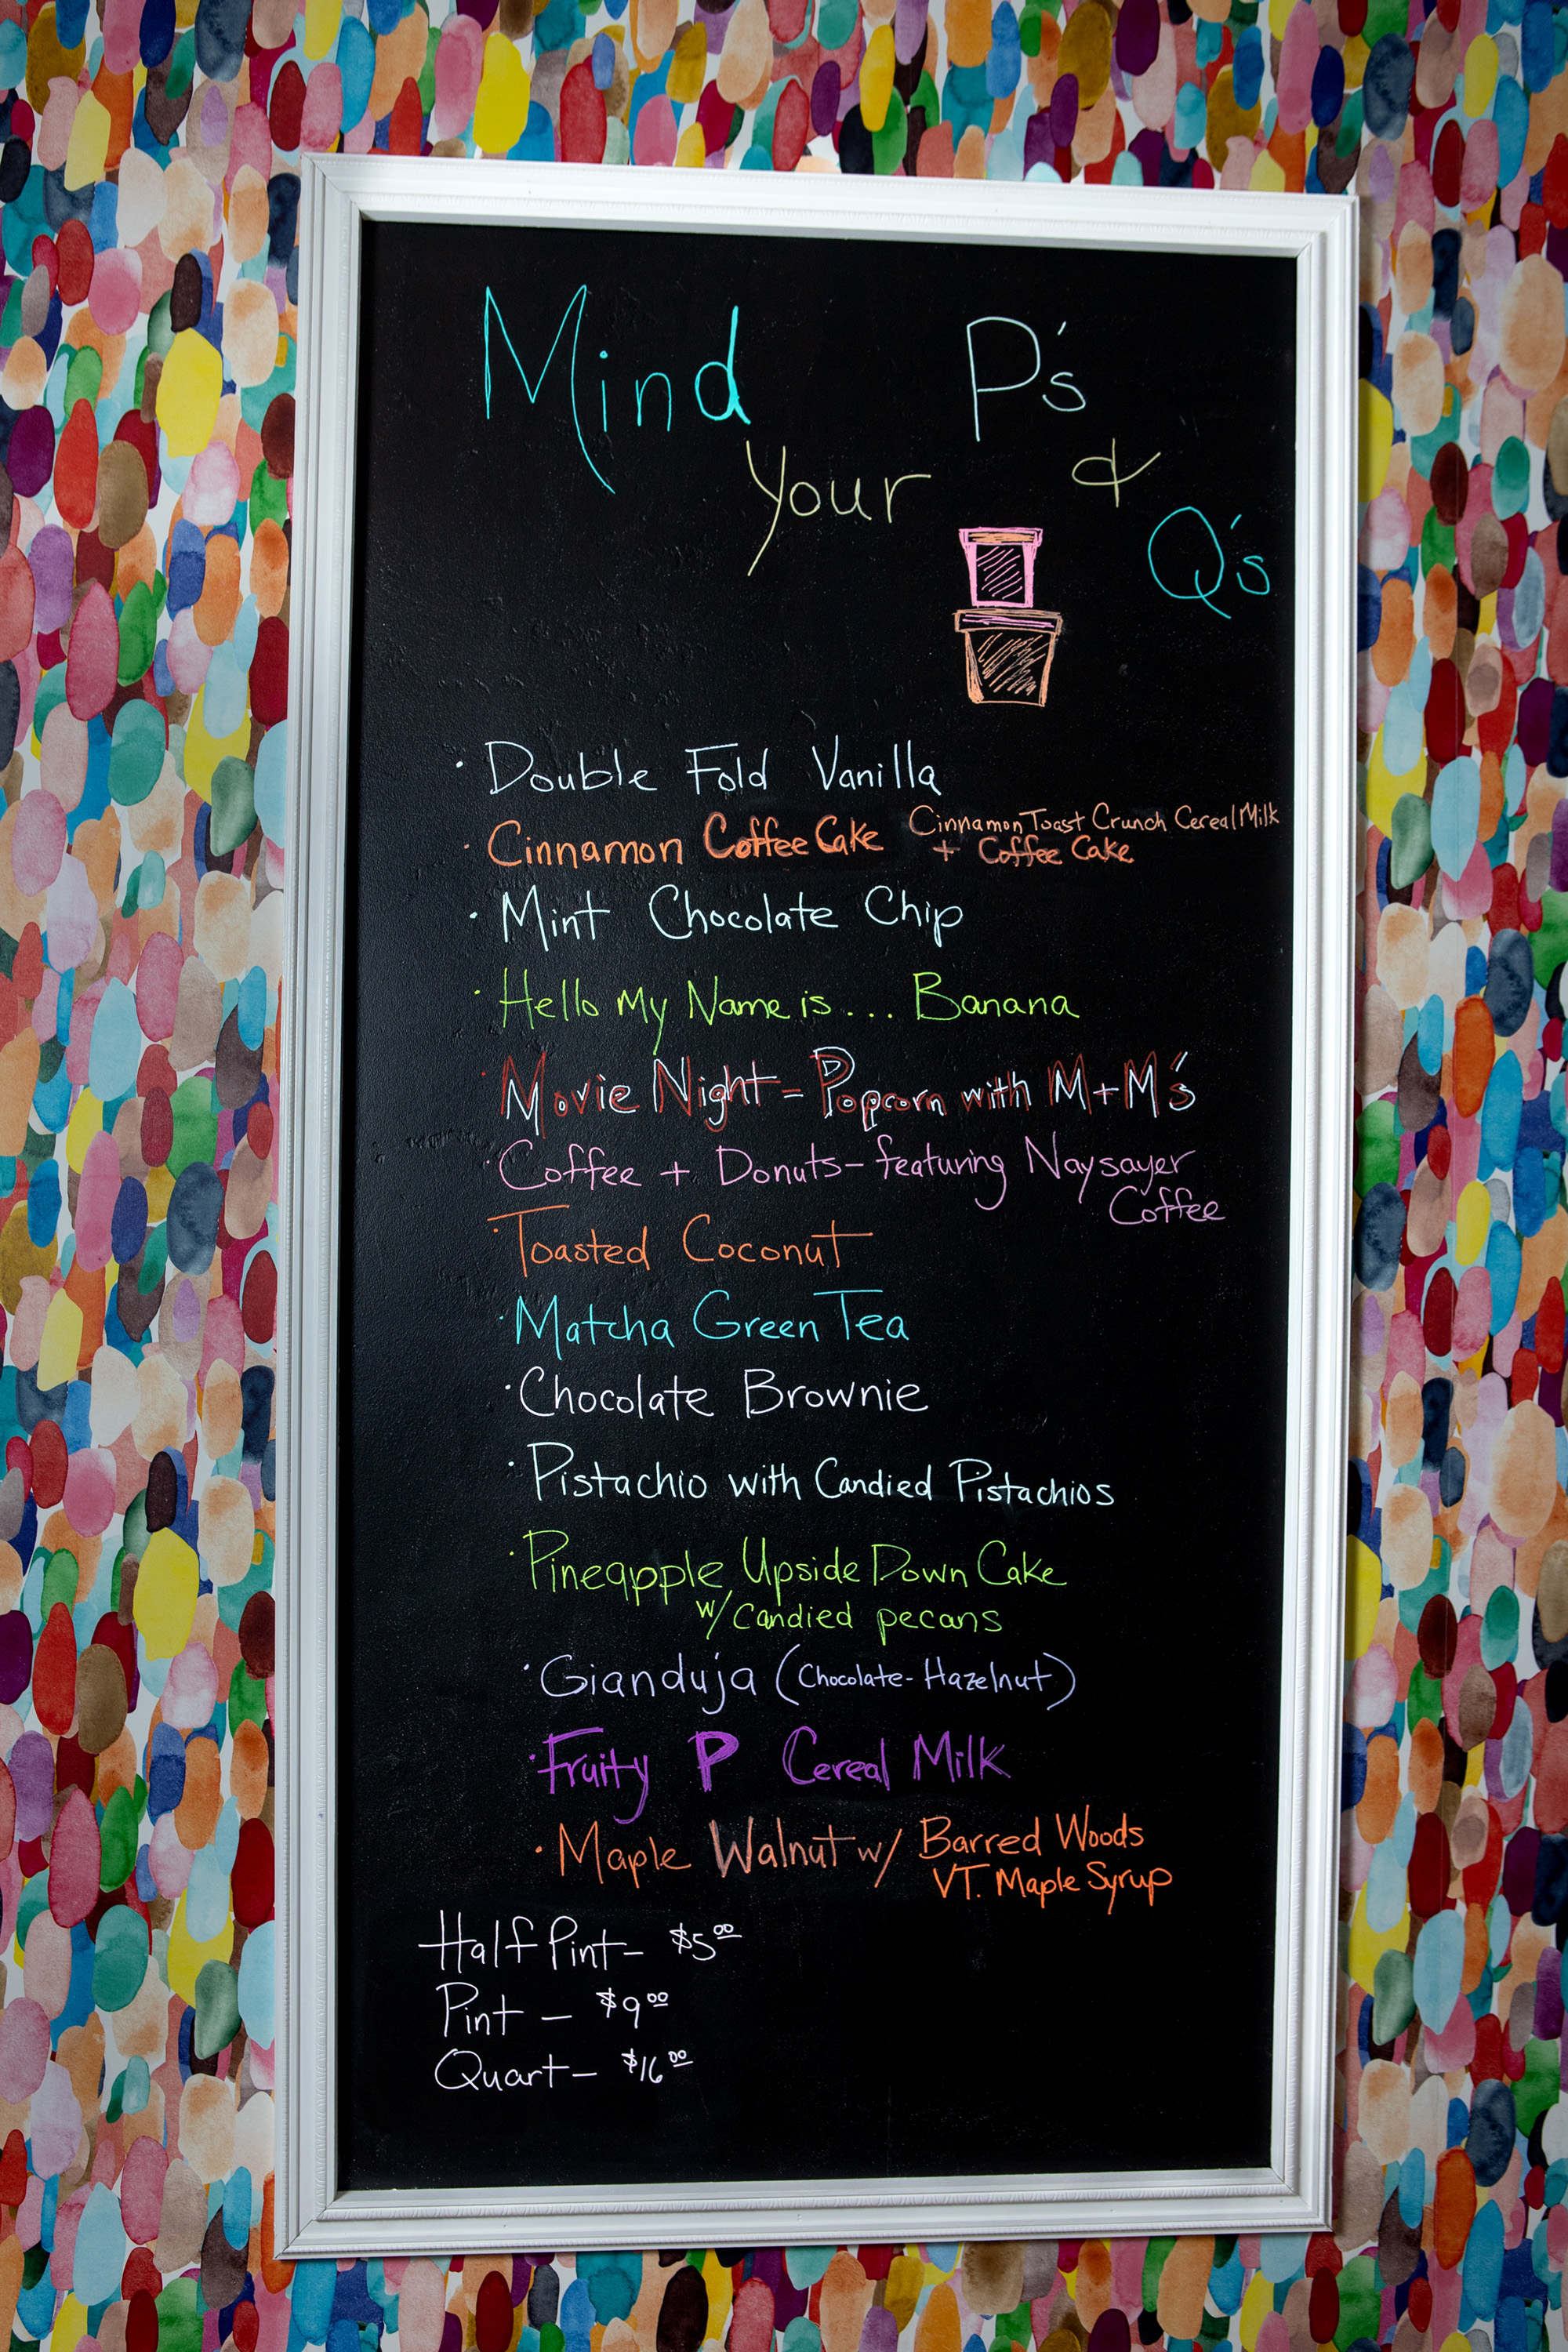 Mind your P's & Q's
· Double Fold Vanilla
· Cinnamon Coffee Cake Cinnamon Toast Crunch Cereal Milk
+ Coffee Cake
· Mint Chocolate Chip
· Hello My Name is... Banana
· Movie Night = Popcorn with M+M's
· Coffee + Donuts - featuring Naysayer
Coffee
· Toasted Coconut
· Matcha Green Tea
· Chocolate Brownie
· Pistachio with Candied Pistachios
· Pineapple Upside Down Cake
w/ candied pecans
· Gianduja (Chocolate-Hazelnut)
· Fruity P Cereal Milk
· Maple Walnut w/ Barred Woods
VT. Maple Syrup
Half Pint - $5.00
Pint - $9.00
Quart - $16.00